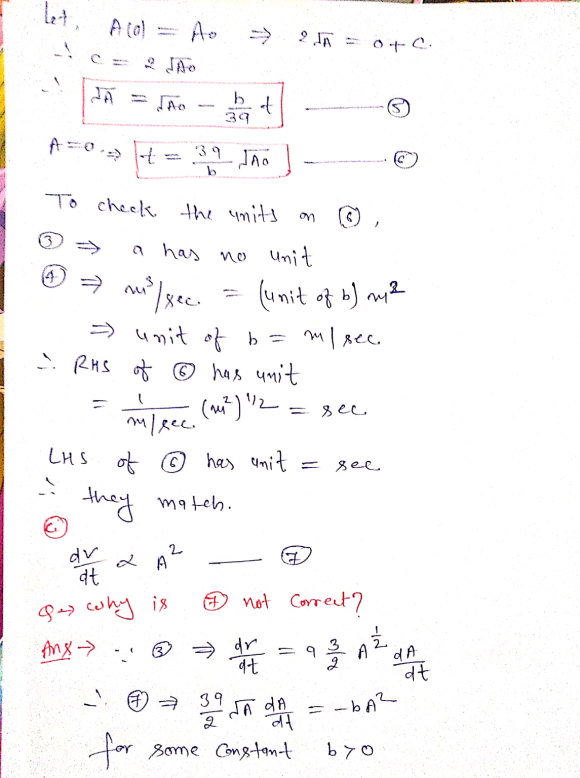 Let, A(0) = A₀ ⇒ 2√A = 0 + C.
∴ C = 2√A₀
∴ √A = √A₀ - b/39 t —— ⑤
A=0. ⇒ t = 39/b √A₀ —— ⑥
To check the units on ⑥,
③ ⇒ a has no unit
④ ⇒ m³/sec. = (unit of b) m²
⇒ unit of b = m/sec.
∴ RHS of ⑥ has unit
= 1/(m/sec.) (m²)^1/2 = sec
LHS of ⑥ has unit = sec
∴ they match.
ⓒ
dv/dt ∝ A² —— ⑦
Q→ why is ⑦ not correct?
Ans → ∵ ③ ⇒ dv/dt = a 3/2 A^1/2 dA/dt
∴ ⑦ ⇒ 39/2 √A dA/dt = -bA²
for some constant b>0